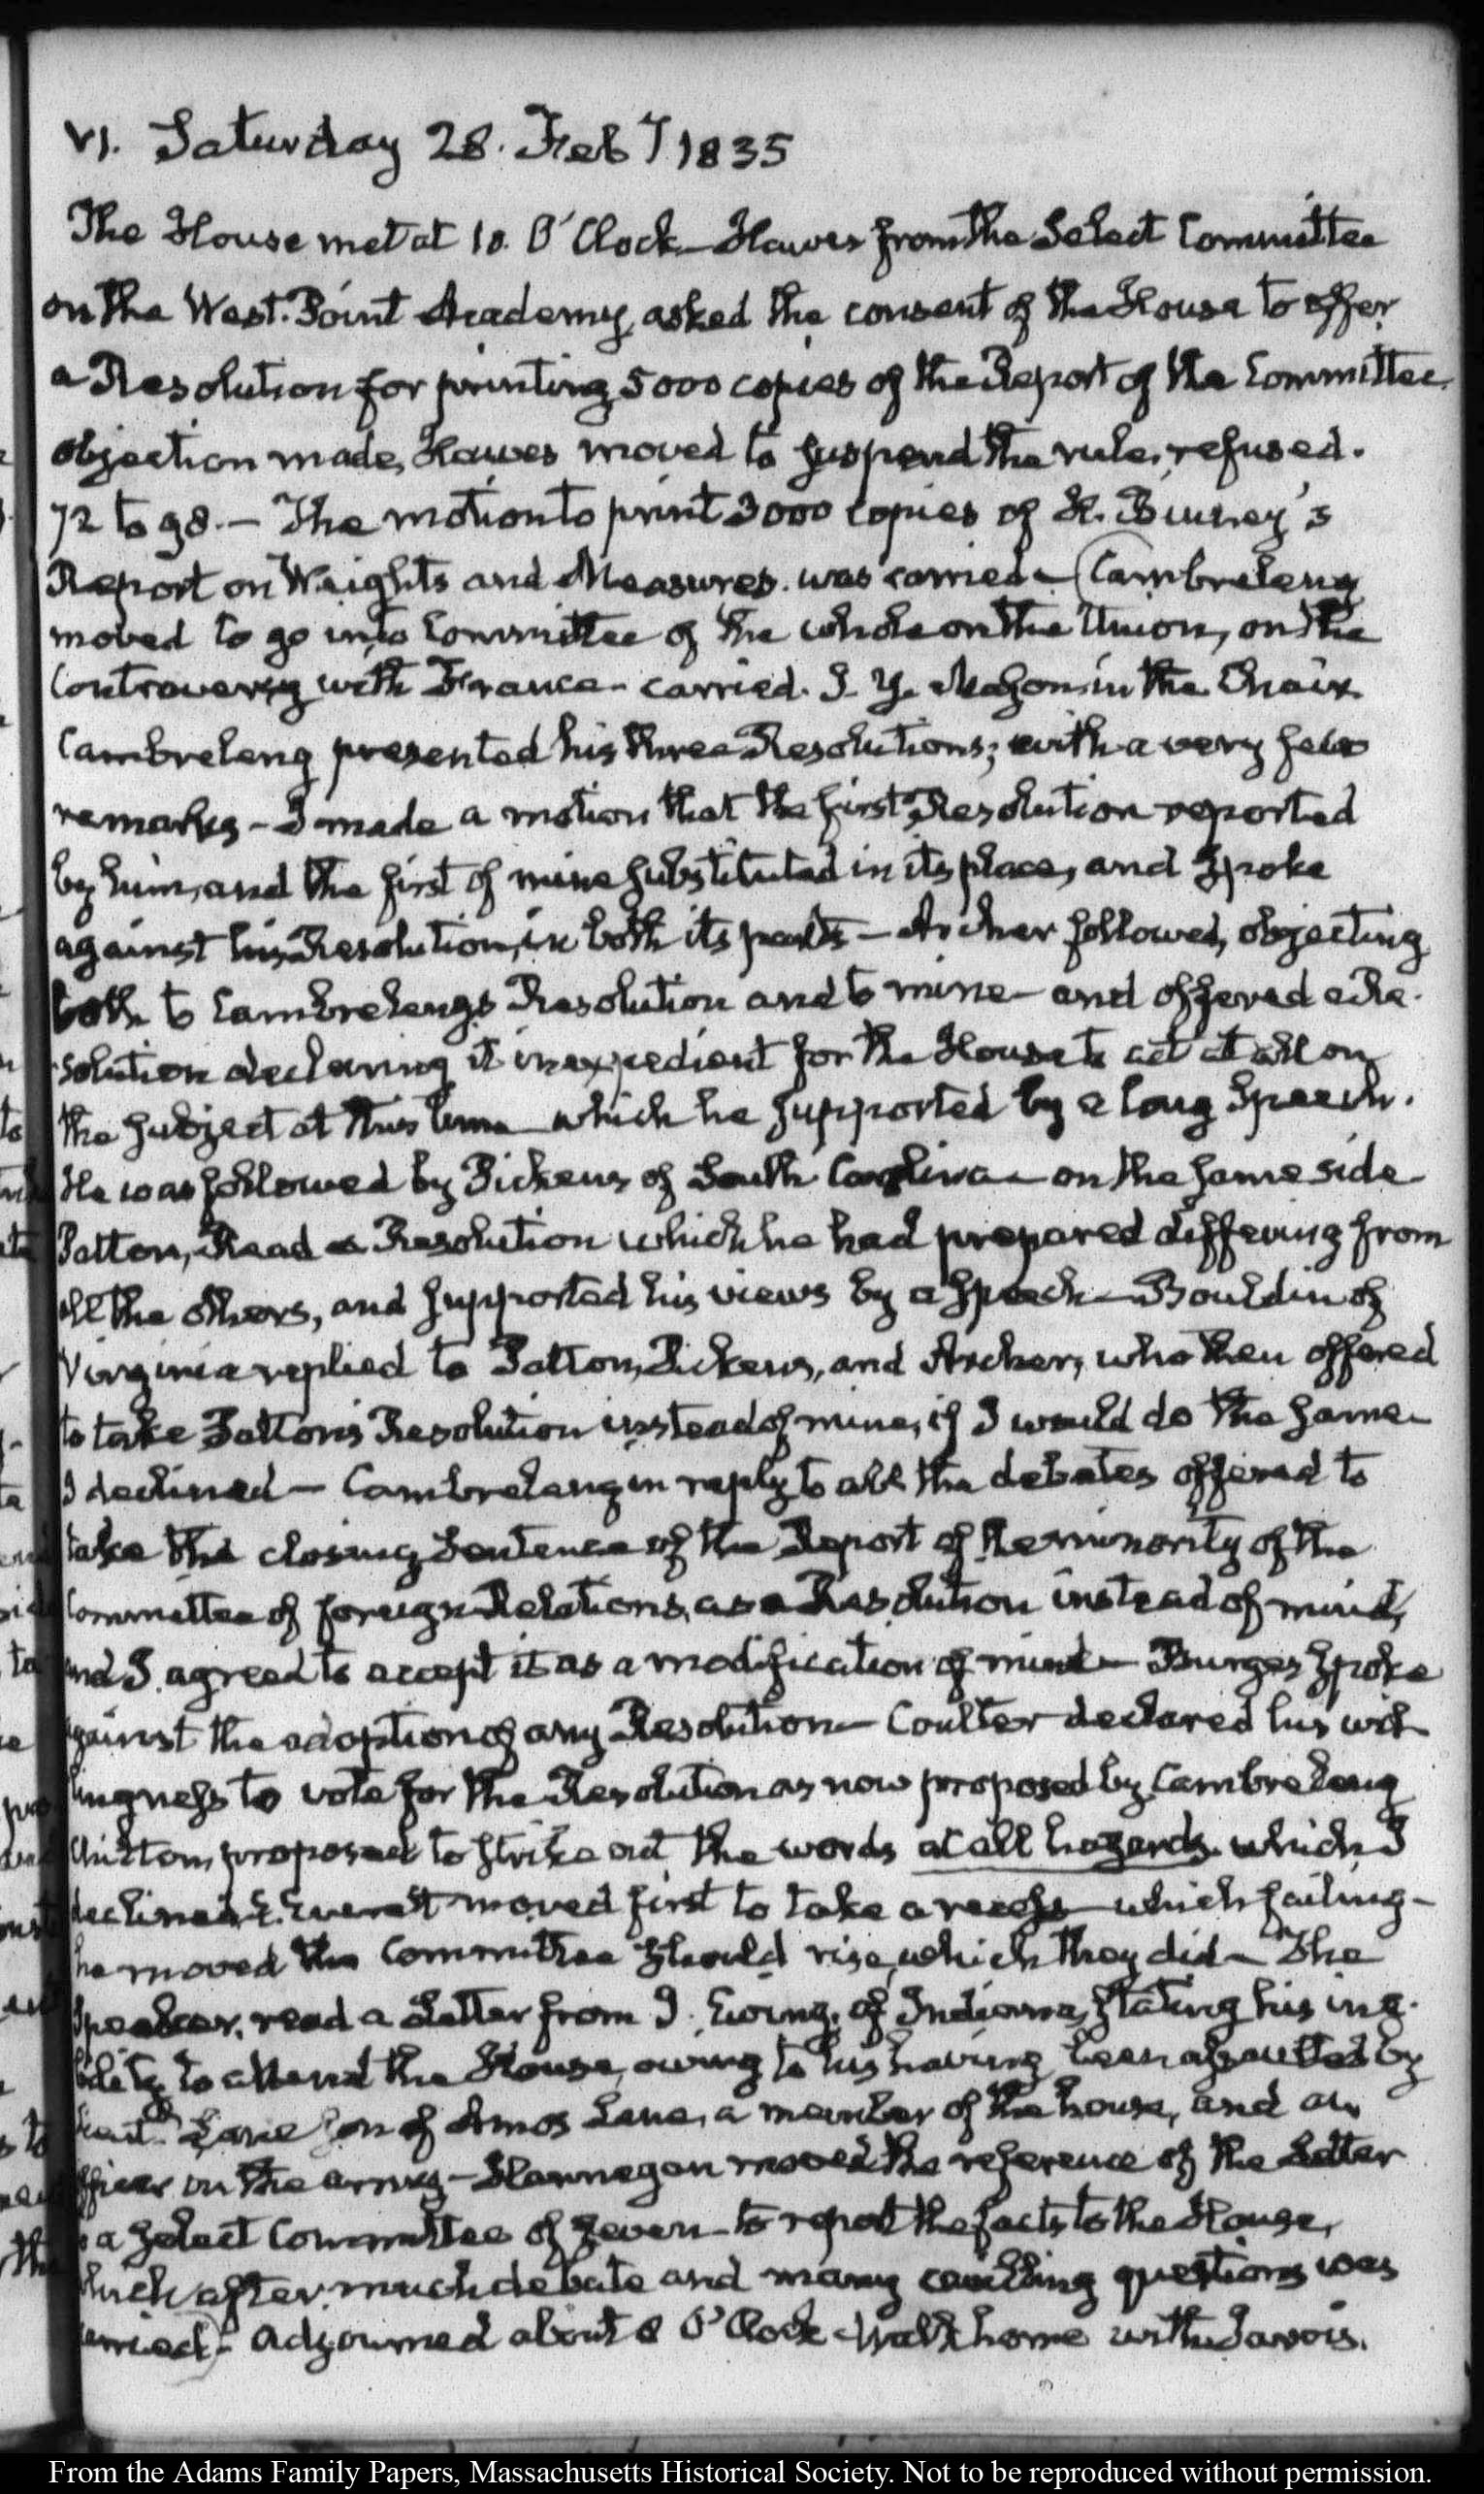 VI. Saturday 28. Feby. 1835
The House met at 10. O'Clock — Hawes from the Select Committee
on the West-Point Academy, asked the consent of the House to offer
a Resolution for printing 5000 copies of the Report of the Committee.
objection made, Hawes moved to suspend the rule, refused.
72 to 98. — The motion to print 3000 copies of H. Binney's
Report on Weights and Measures. was carried — (Cambreleng
moved to go into Committee of the whole on the Union, on the
Controversy with France — carried. J. Y. Mason in the Chair
Cambreleng presented his three Resolutions; with a very few
remarks — I made a motion that the first Resolution reported
by him, and the first of mine substituted in its place, and spoke
against his Resolution, in both its parts — Archer followed, objecting
both to Cambreleng's Resolution and to mine — and offered a Re-
solution declaring it inexpedient for the House to act at all on
the subject at this time — which he supported by a long Speech.
He was followed by Pickens of South Carolina — on the same side
Patton, Read a Resolution which he had prepared differing from
all the others, and supported his views by a Speech — Bouldin of
Virginia replied to Patton, Pickens, and Archer, who then offered
to take Patton's Resolution instead of mine, if I would do the same —
I declined — Cambreleng in reply to all the debates offered to
take the closing Sentence of the Report of the minority of the
Committee of foreign Relations, as a Resolution instead of mine,
and I agreed to accept it as a modification of mine — Burges spoke
against the adoption of any Resolution — Coulter declared his wil-
lingness to vote for the Resolution as now proposed by Cambreleng
Chilton, proposed to strike out the words at all hazards. which I
declined. E. Everett moved first to take a recess — which failing —
he moved the Committee should rise, which they did — The
Speaker, read a Letter from J. Ewing, of Indiana, stating his ina-
bility to attend the House, owing to his having been assaulted by
Lieutt. Lane son of Amos Lane, a member of the house, and an
Officer in the army — Hannegan moved the reference of the Letter
to a select Committee of seven — to report the facts to the House,
which after much debate and many cavilling questions was
carried) — Adjourned about 8 O'Clock — Walk home with Jarvis.
From the Adams Family Papers, Massachusetts Historical Society. Not to be reproduced without permission.